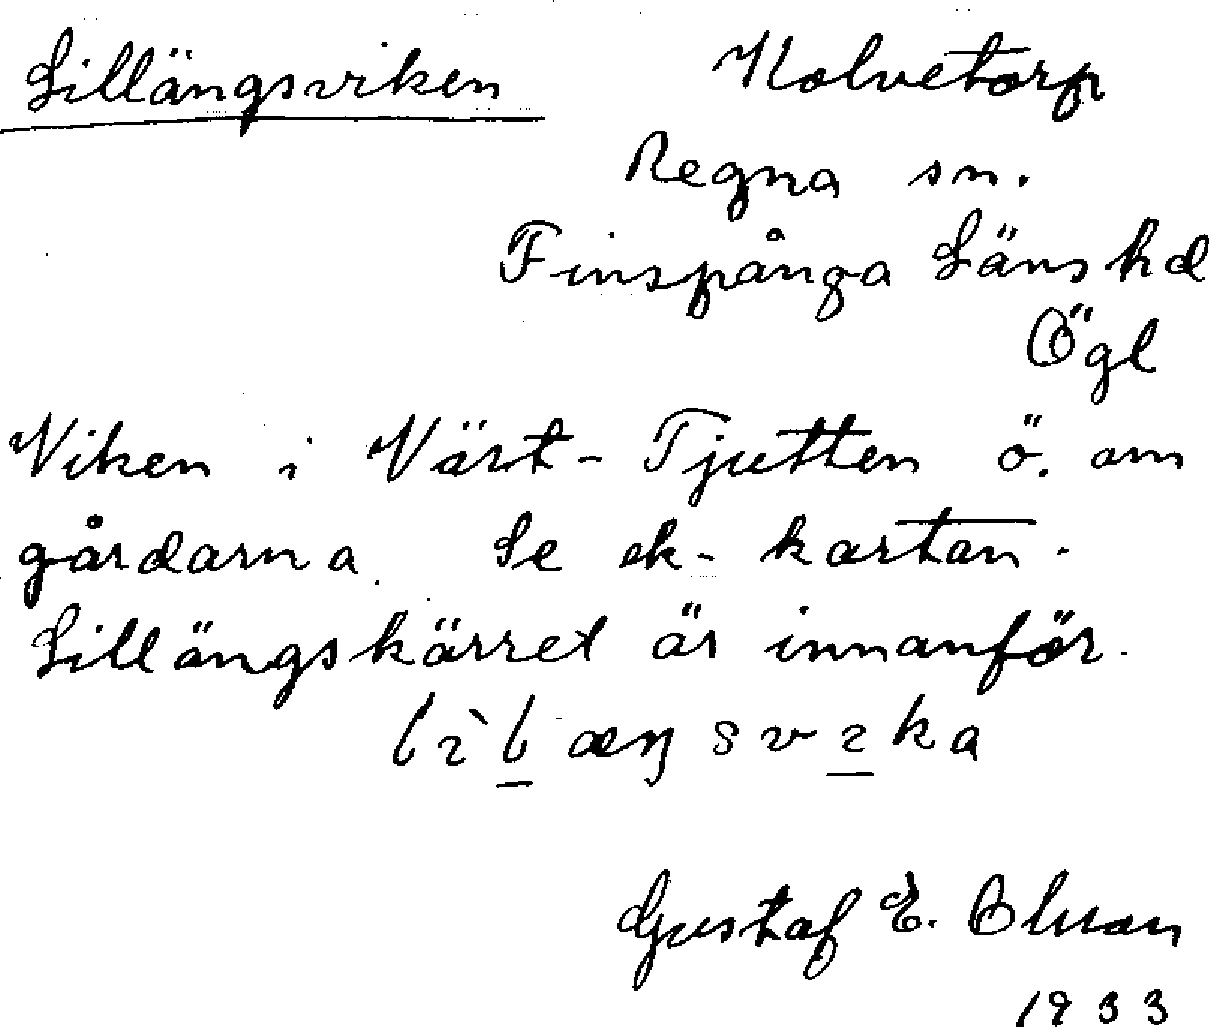 Lillängsviken Kolvetorp
Regna sn.
Finspånga Läns hd
Ögl
Viken i Väst-Tjutten ö. om
gårdarna. Se ek-kartan.
Lillängskärret är innanför.
Gustaf E. Olsson
1933